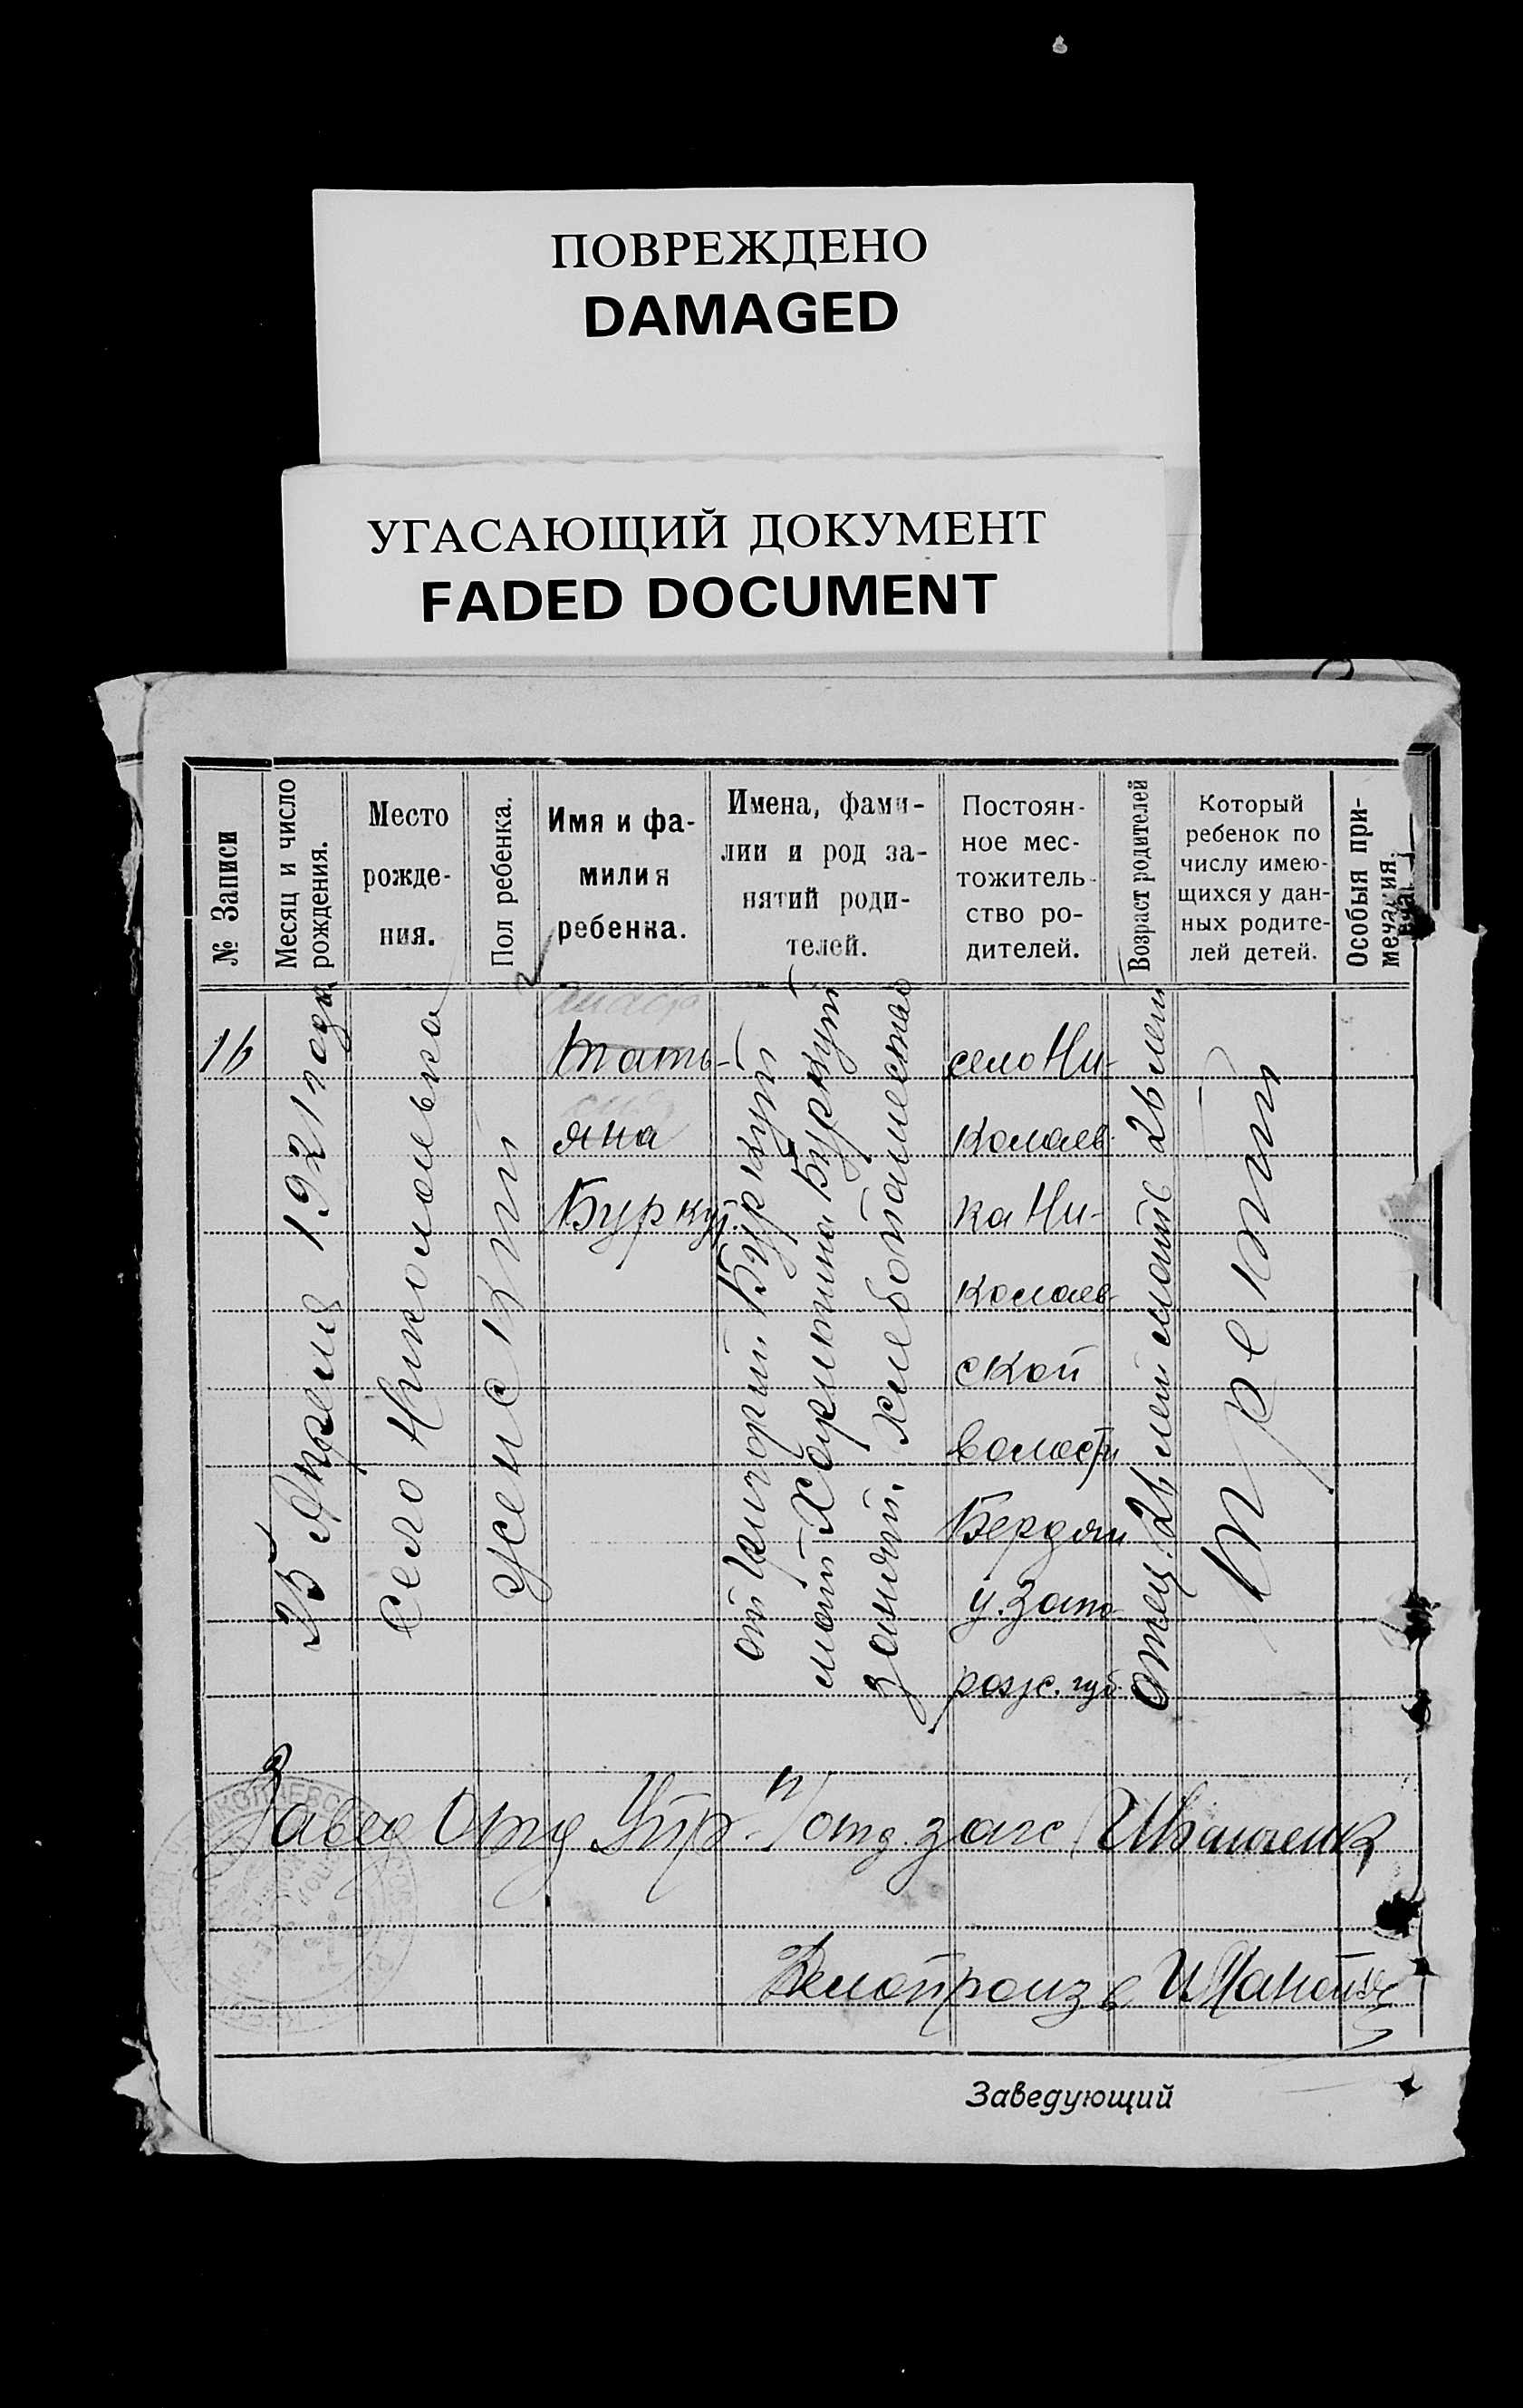 ПОВРЕЖДЕНО
DAMAGED
УГАСАЮЩИЙ ДОКУМЕНТ
FADED DOCUMENT
№ Записи
Месяц и число
рождения.
Место
рожде-
ния.
Пол ребенка.
Имя и фа-
милия
ребенка.
Имена, фами-
лии и род за-
нятий роди-
телей.
Постоян-
ное мес-
тожитель-
ство ро-
дителей.
Возраст родителей
Который
ребенок по
числу имею-
щихся у дан-
ных родите-
лей детей.
Особыя при-
мечания.
16
25 Апреля 1921 года
село Николаевка
женский
Анаста
Тать-
сия
яна
Буркут
от Григорий Буркут
мат. Харитина Буркут
занятий. хлебопашество
село Ни-
колаев
ка Ни-
колаев-
ской
волости
Бердян
у. Запо-
рож. губ.
отец. 26 лет мать 26 лет
третий
Завед Отд Упр. п/отд. загс
Делопроизв
Заведующий